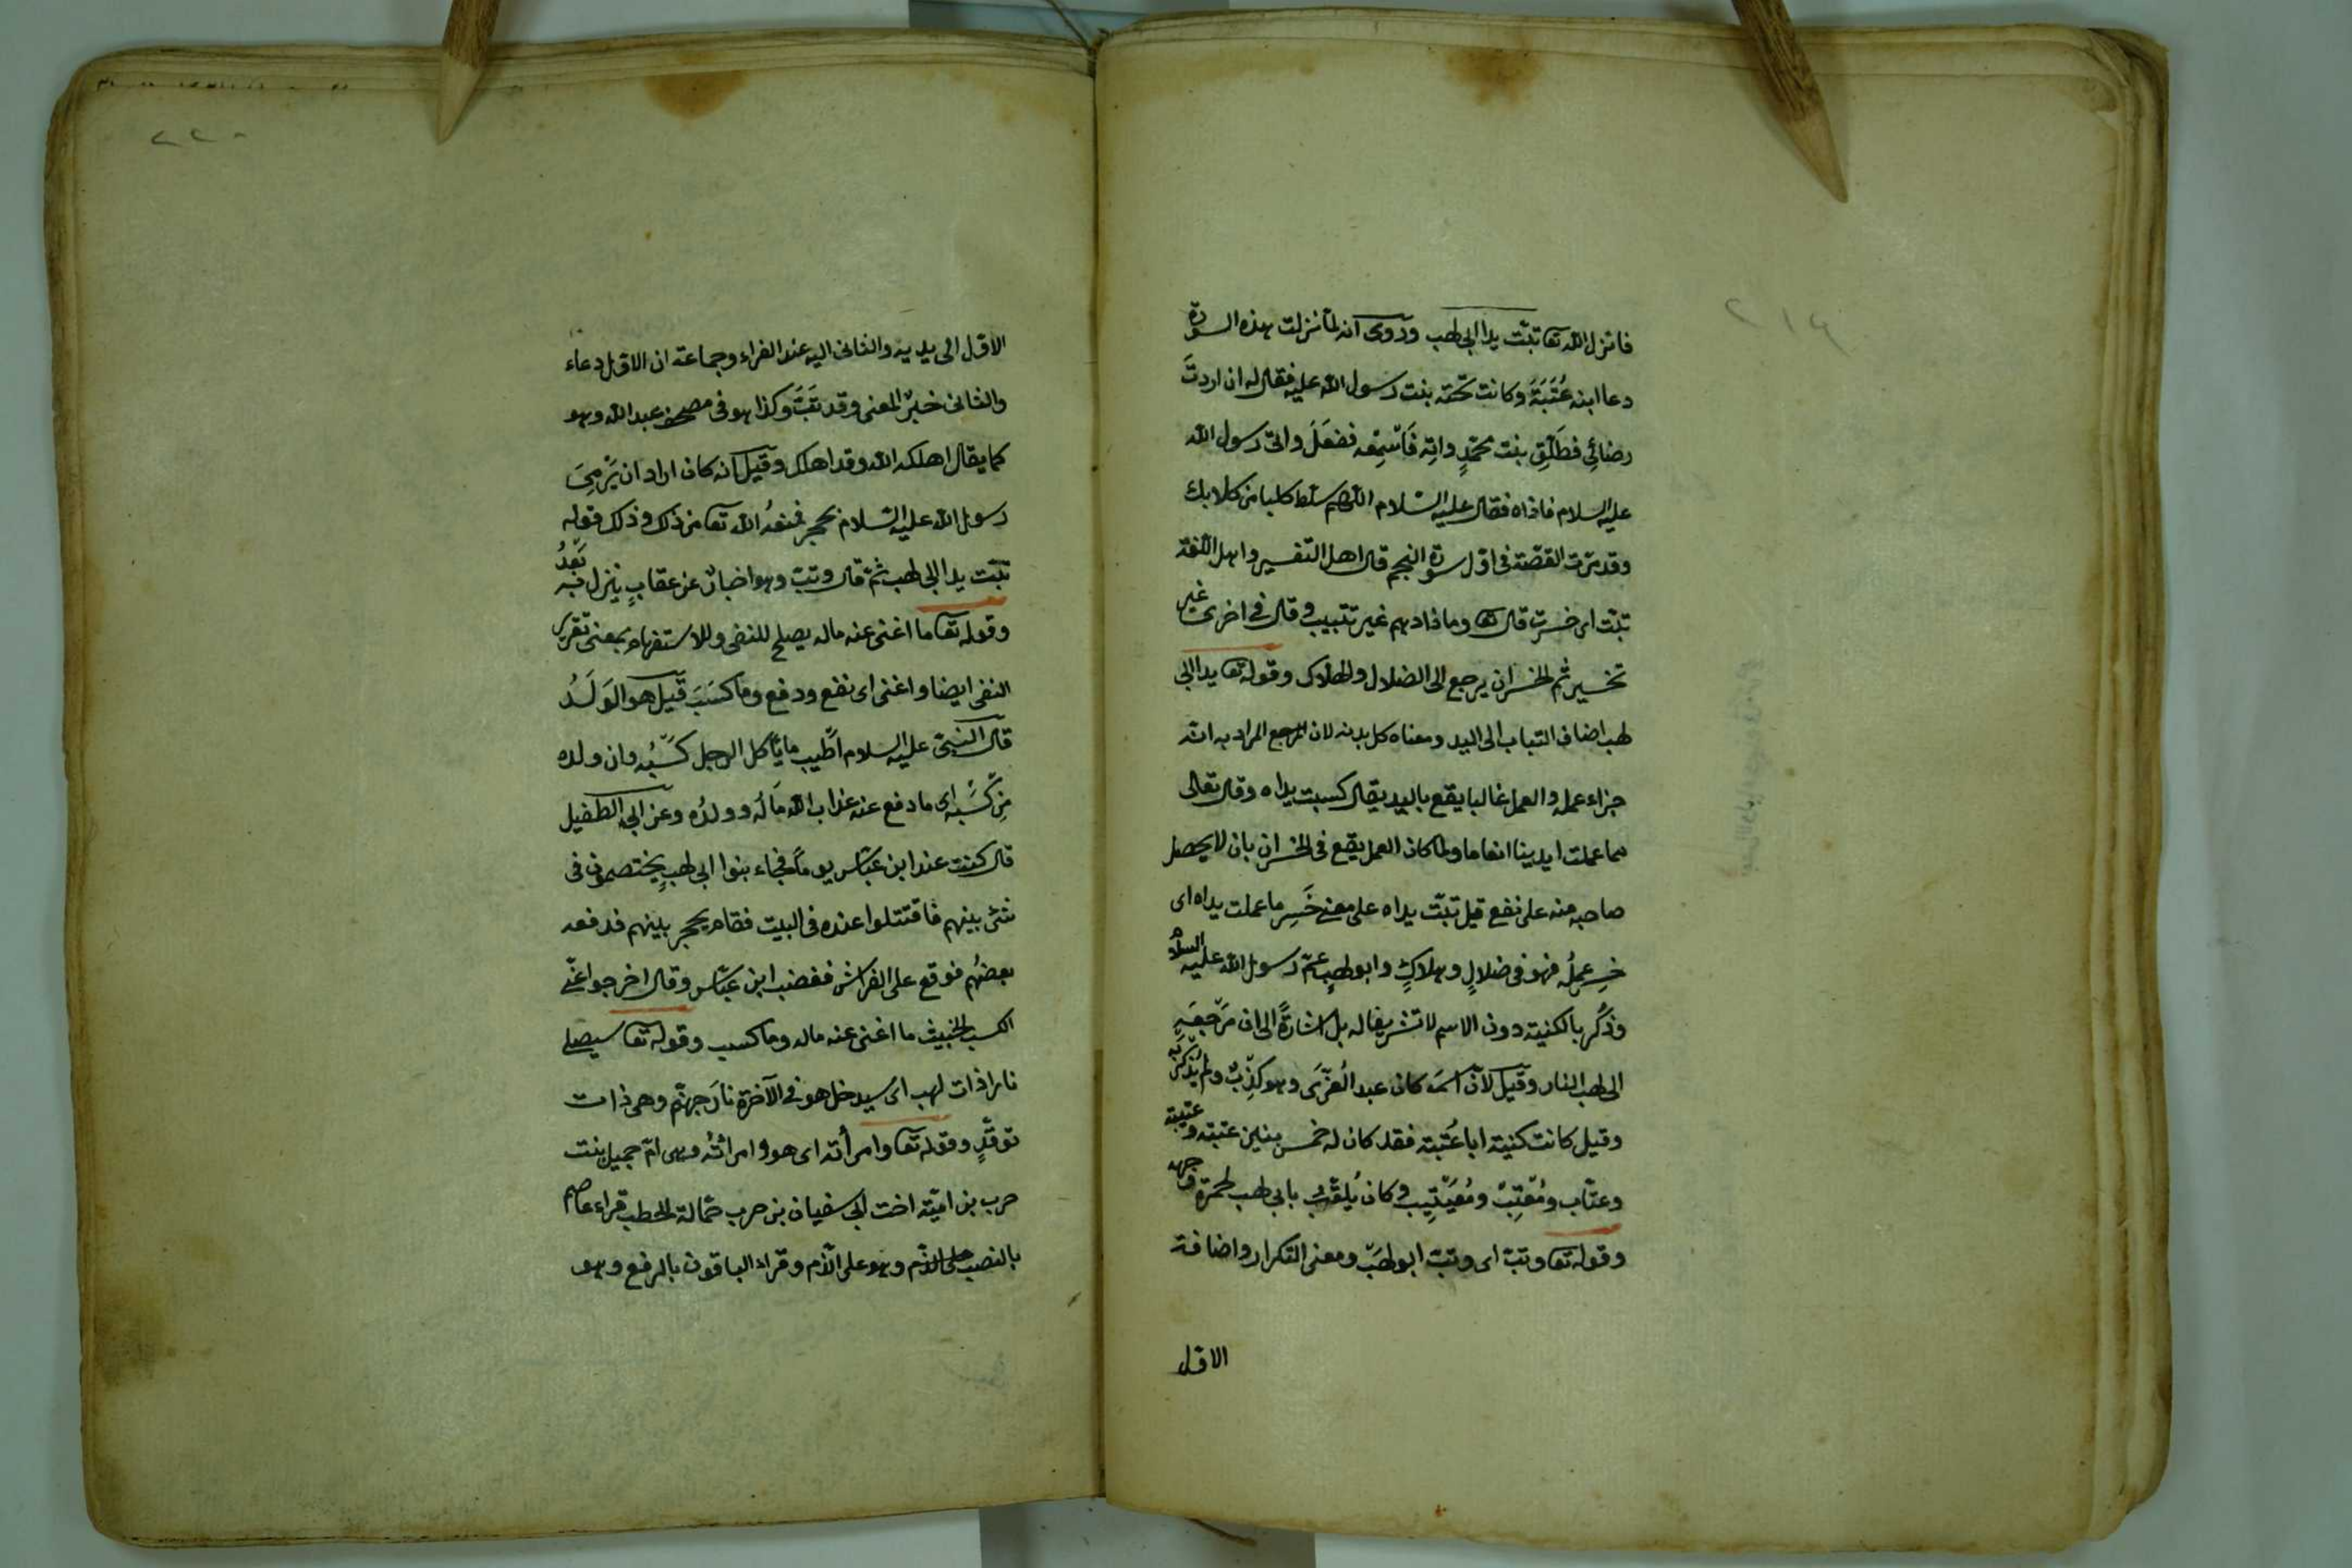 فانزل الله تعا تبّت يدا ابى لهب وروى انه لمّا نزلت هذه السورة
دعا ابنه عُتَبَةَ وكانت تحته بنت رسول الله عليه فقال له ان اردتَ
رضائِى فطَلِّق بنت محمّدٍ وائته فَاشتِمْه ففعَلَ واتى رسول الله
عليه السلام فاذاه فقال عليه السّلام اللّهم سلّط كلبا من كلابك
وقد مرّت القصّة فى اوّل سورة النجم قال اهل التفسير واهل اللّغة
تبّت اى خسرت قال تعا وما زادهم غير تتبيب وقال فى اخرى غير
تخسير ثم الخسران يرجع الى الضلال والهلاك وقوله تعا يدا ابى
لهب اضاف التباب الى اليد ومعناه كل بدنه لان المرجع المراد به انّه
جزاء عمله والعمل غالبا يقع باليد يقال كسبت يداه وقال تعالى
مما عملت ايدينا انعاما ولما كان العمل يقع فى الخسران بان لا يحصل
صاحبه منه على نفع قيل تبّت يداه على معنى خَسِر ما عملت يداه اى
خسر عملُه فهو فى ضلالٍ وهلاكٍ وابو لهبٍ عمّ رسول الله عليه السلام
وذُكر بالكنية دون الاسم لا تشريفا له بل اشارةً الى ان مَرْجعَه
الى لهب النار وقيل لانّ اسمَه كان عبد العُزّى وهو كذِبٌ ولم يُذكر به
وقيل كانت كنيته ابا عُتبة فقد كان له خمس بنين عتبة وعتيبة
وعتّاب ومُعْتِبٌ ومُعَيْتِيب وكان يُلقّب بابى لهب لحمرة وجهه
وقوله تعا وتبّ اى وتبّ ابو لهَبٍ ومعنى التكرار واضافة
الاوّل
٢١٩
٢٢٠
الاوّل الى يديه والثانى اليه عند الفراء وجماعة ان الاوّل دعاء
والثانى خبرٌ المعنى وقد تَبَّ وكذا هو فى مصحف عبد الله وهو
كما يقال اهلكه الله وقد اهلك وقيل انه كان اراد ان يَرْمِىَ
رسول الله عليه السّلام بحجر فمنعهُ الله تعا من ذلك وذلك قوله
تبّت يدا ابى لهب ثمّ قال وتبّ وهو اخبارٌ عن عقابٍ ينزل به بَعْدُ
وقوله تعا ما اغنى عنه ماله يصلح للنفى وللاستفهام بمعنى تقرير
النفى ايضا واغنى اى نفع ودفع وما كسَبَ قيل هو الوَلَدُ
قال النبىّ عليه السلام اطْيب ما يأكل الرجل كسْبُه وان ولده
مِن كَسْبه اى ما دفع عنه عذاب الله مَالُه وولدُه وعن ابى الطفيل
قال كنت عند ابن عبّاس يوماً فجاء بنوا ابى لهبٍ يختصمون فى
شئ بينهم فاقتتلوا عنده فى البيت فقام يحجر بينهم فدفعه
بعضُهم فوقع على الفراش فغضب ابن عبّاس وقال اخرجوا عنّى
الكسب الخبيث ما اغنى عنه ماله وما كسب وقوله تعا سيصلى
نارا ذات لهب اى سيدخل هو فى الآخرة نارَ جهنّم وهى ذات
توقّدٍ وقوله تعا وامرأته اى هو وامرأتُه وهى امّ جميل بنت
حرب بن اميّة اخت ابى سفيان بن حرب حمّالة الحطب قراء عاصم
بالنصب على الذّم وهو على الذّم وقراء الباقون بالرفع وهو